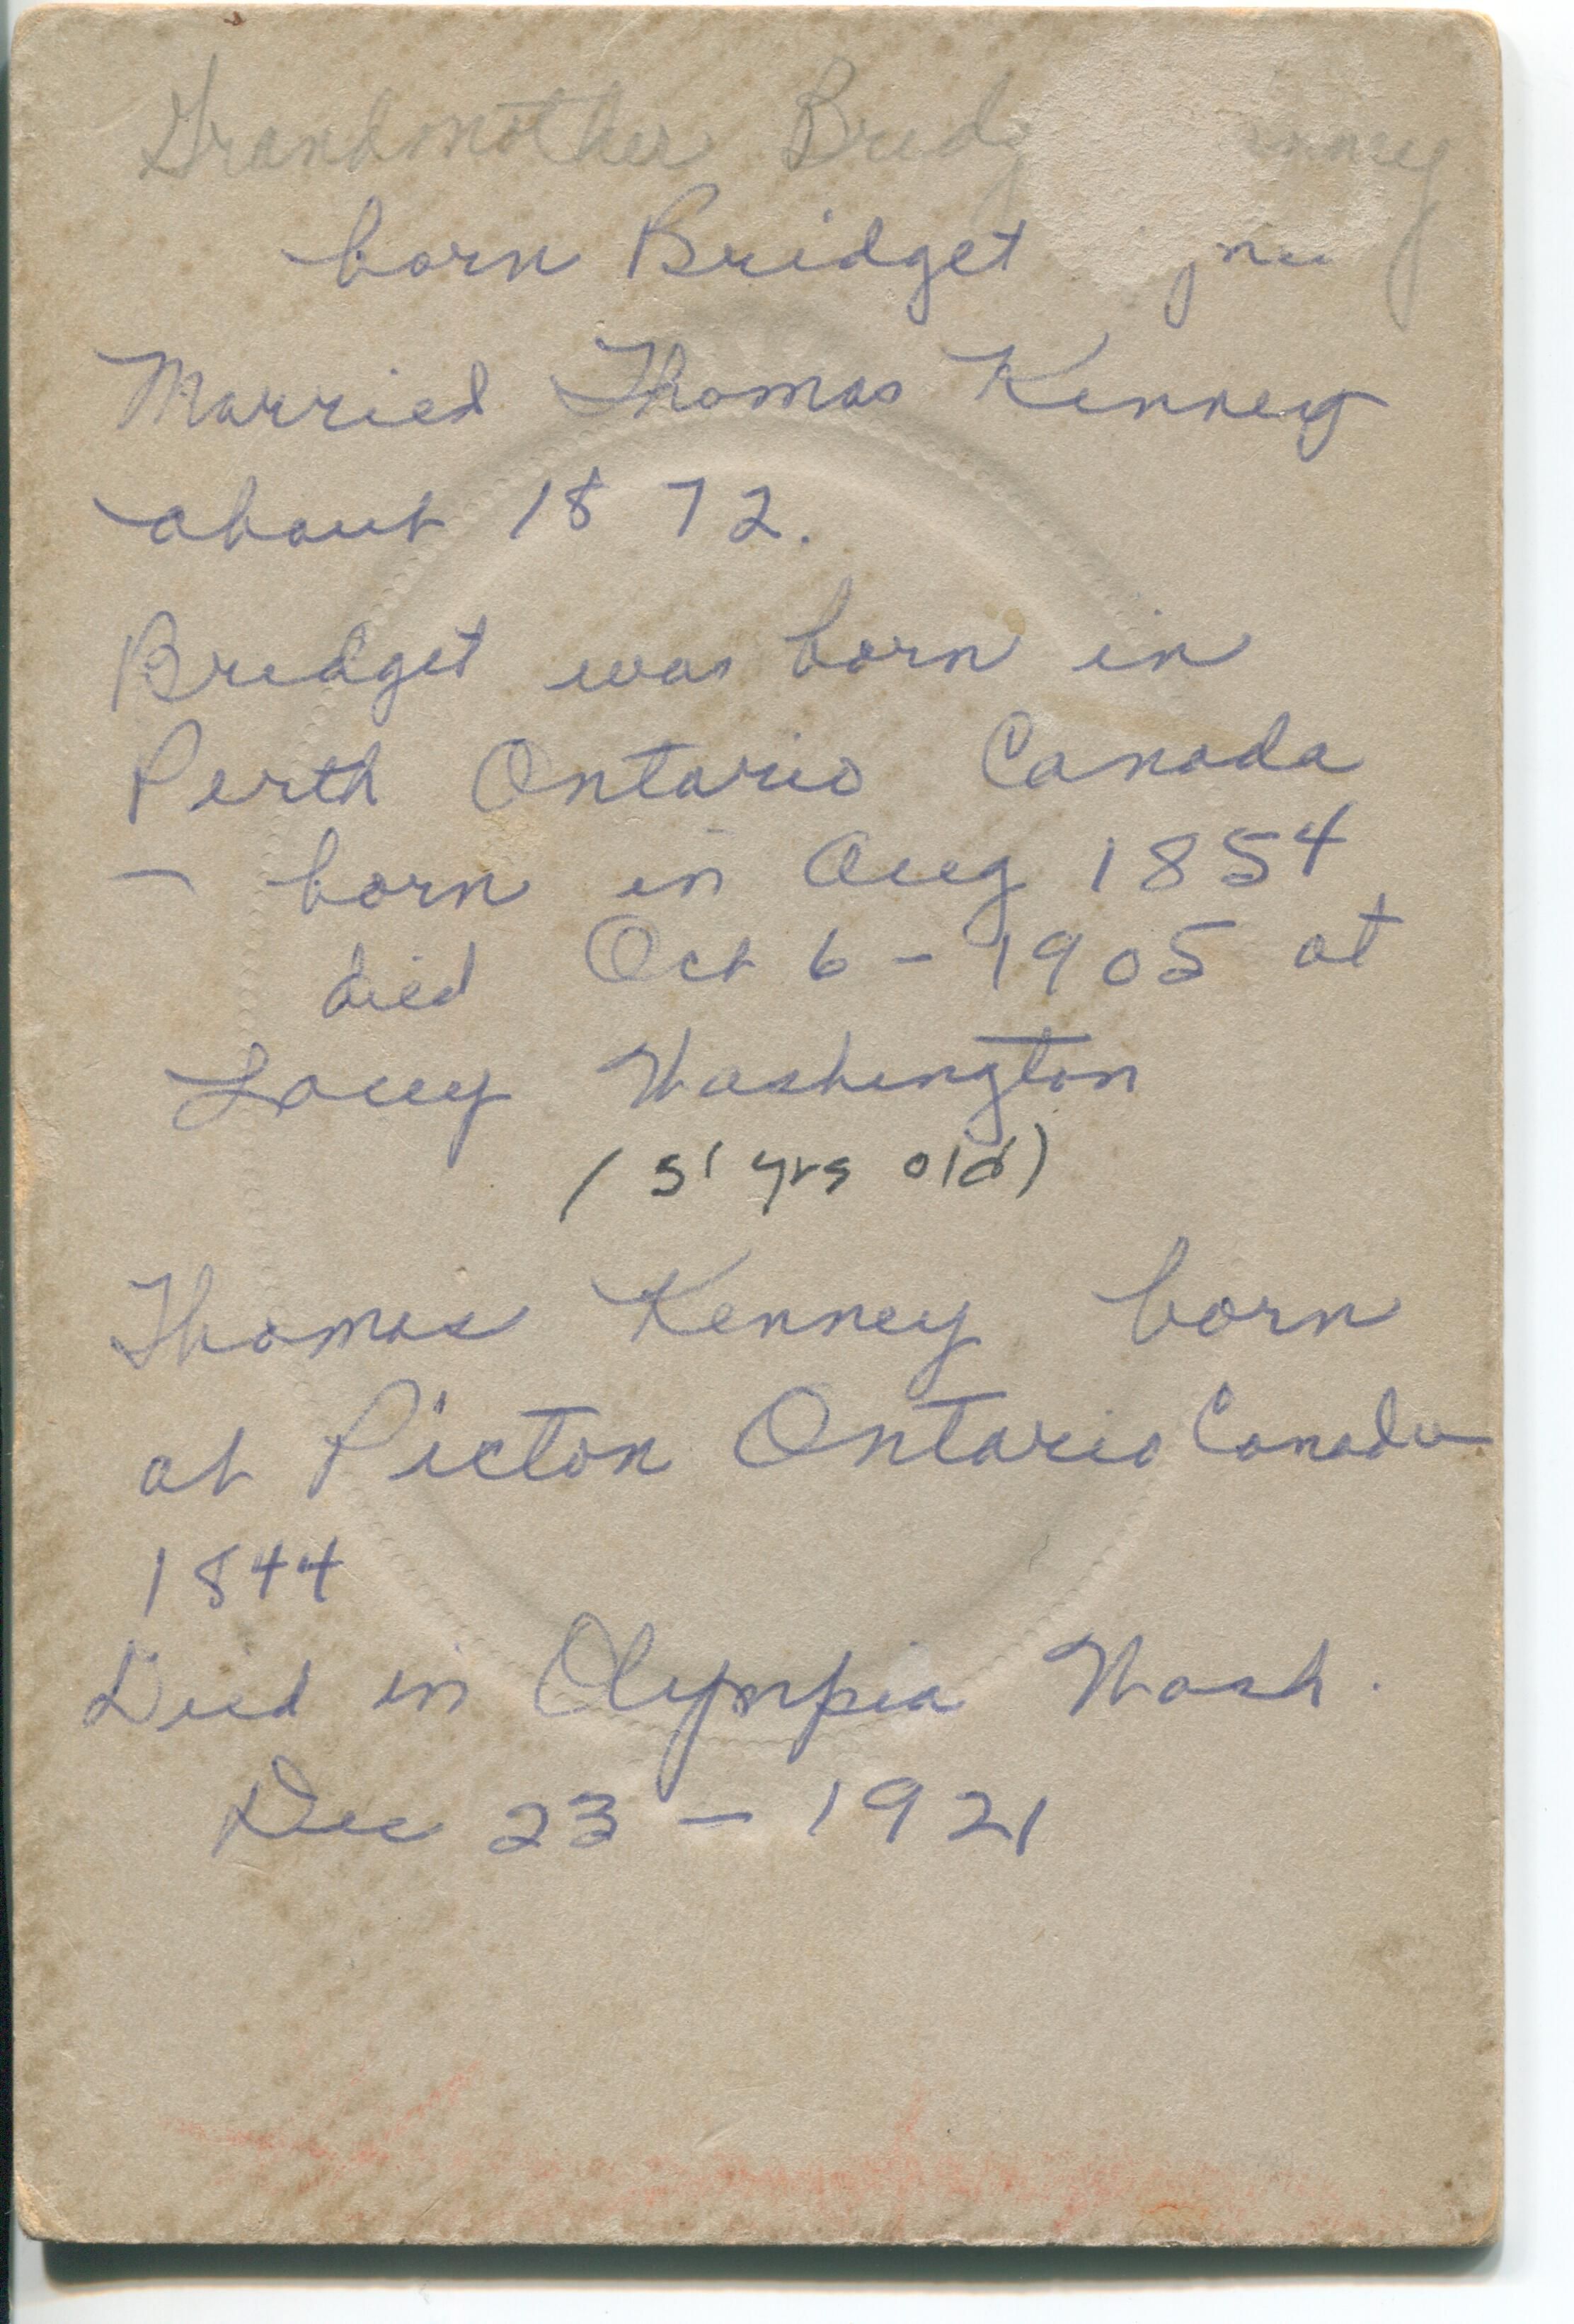 Grandmother
born Bridget
Married Thomas Kenney
about 1872.
Bridget was born in
Perth Ontario Canada
- born in Aug 1854
died Oct 6 - 1905 at
Lacey Washington
(51 yrs old)
Thomas Kenney born
at Picton Ontario Canada
1844
Died in Olympia Wash.
Dec 23 - 1921